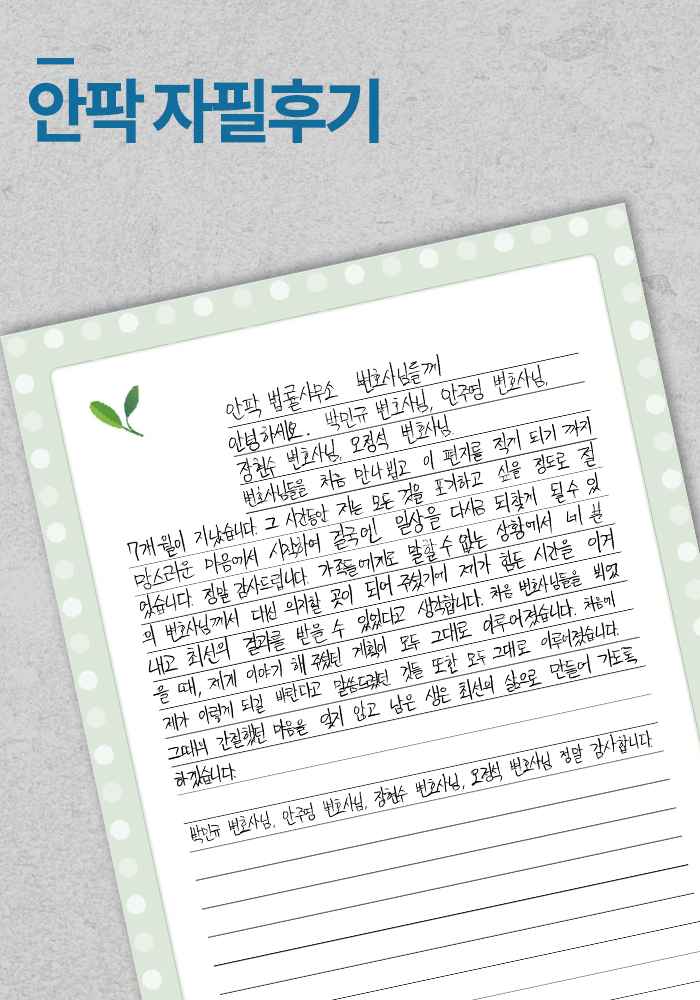 안팍 자필후기
안팍 법률사무소 변호사님들께
안녕하세요. 박민규 변호사님, 안주영 변호사님,
장현수 변호사님, 오정석 변호사님
변호사님들을 처음 만나뵙고 이 편지를 적게 되기 까지
7개월이 지났습니다. 그 시간동안 저는 모든 것을 포기하고 싶을 정도로 절
망스러운 마음에서 시작하여 결국엔 일상을 다시금 되찾게 될 수 있
었습니다. 정말 감사드립니다. 가족들에게도 말할 수 없는 상황에서 네 분
의 변호사님께서 대신 의지할 곳이 되어 주셨기에 제가 힘든 시간을 이겨
내고 최선의 결과를 받을 수 있었다고 생각합니다. 처음 변호사님들을 뵈었
을 때, 제게 이야기 해 주셨던 계획이 모두 그대로 이루어졌습니다. 처음에
제가 이렇게 되길 바란다고 말씀드렸던 것들 또한 모두 그대로 이루어졌습니다.
그때의 간절했던 마음을 잊지 않고 남은 생은 최선의 삶으로 만들어 가도록
하겠습니다.
박민규 변호사님, 안주영 변호사님, 장현수 변호사님, 오정석 변호사님 정말 감사합니다.